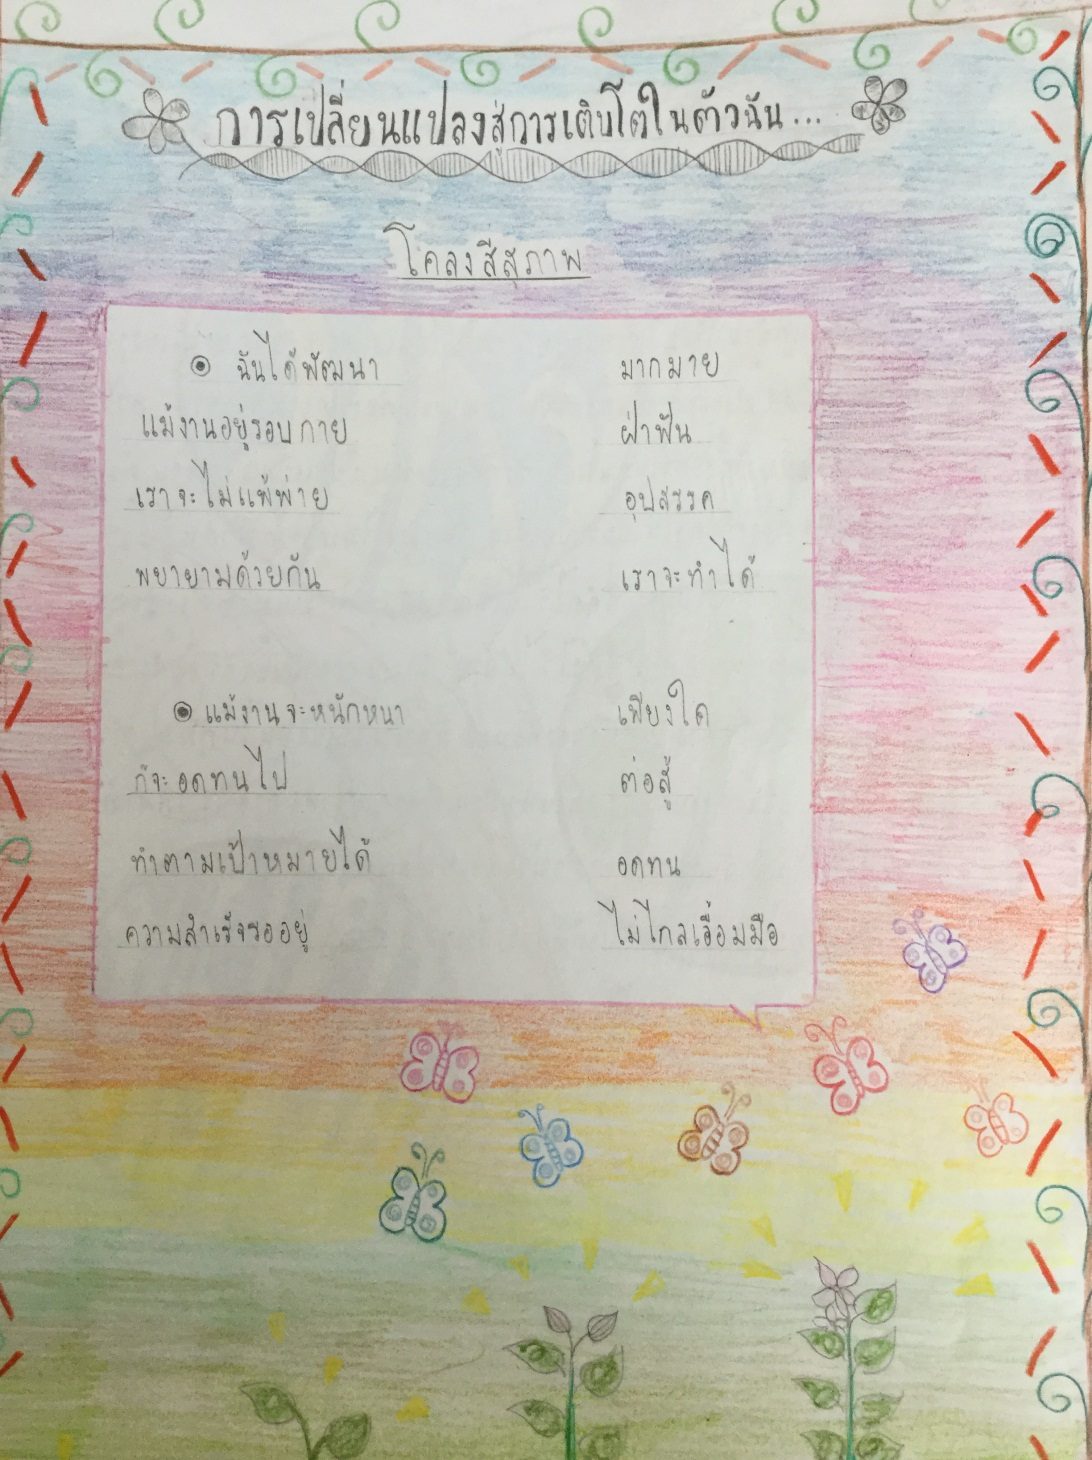 การเปลี่ยนแปลงสู่การเติบโตในตัวฉัน...
โคลงสี่สุภาพ
๏ ฉันได้พัฒนา มากมาย
แม้งานอยู่รอบกาย ฝ่าฟัน
เราจะไม่แพ้พ่าย อุปสรรค
พยายามด้วยกัน เราจะทำได้
๏ แม้งานจะหนักหนา เพียงใด
ก็จะอดทนไป ต่อสู้
ทำตามเป้าหมายได้ อดทน
ความสำเร็จรออยู่ ไม่ไกลเอื้อมมือ